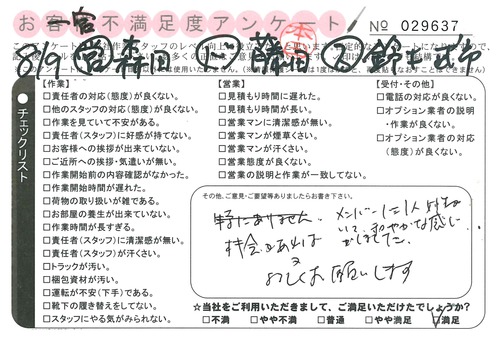 お客様不満足度アンケート
№ 029637
8/9
森田
藤田
鈴木
チェックリスト
【作業】
□責任者の対応(態度)が良くない。
□他のスタッフの対応(態度)が良くない。
□作業を見ていて不安がある。
□責任者(スタッフ)に好感が持てない。
□お客様への挨拶が出来ていない。
□ご近所への挨拶・気遣いが無い。
□作業開始前の内容確認がなかった。
□作業開始時間が遅れた。
□荷物の取り扱いが雑である。
□お部屋の養生が出来ていない。
□作業時間が長すぎる。
□責任者(スタッフ)に清潔感が無い。
□責任者(スタッフ)が汗くさい。
□トラックが汚い。
□梱包資材が汚い。
□運転が不安(下手)である。
□靴下の履き替えをしてない。
□スタッフにやる気がみられない。
【営業】
□見積もり時間に遅れた。
□見積もり時間が長い。
□営業マンに清潔感が無い。
□営業マンが煙草くさい。
□営業マンが汗くさい。
□営業態度が良くない。
□営業の説明と作業が一致してない。
【受付・その他】
□電話の対応が良くない。
□オプション業者の説明
・作業が良くない。
□オプション業者の対応
(態度)が良くない。
その他、ご意見・ご要望等ありましたらお書き下さい。
特にありません。
機会があれば
よろしくお願いします
☆当社をご利用いただきまして、ご満足いただけたでしょうか?
□不満 □やや不満 □普通 □やや満足 □満足